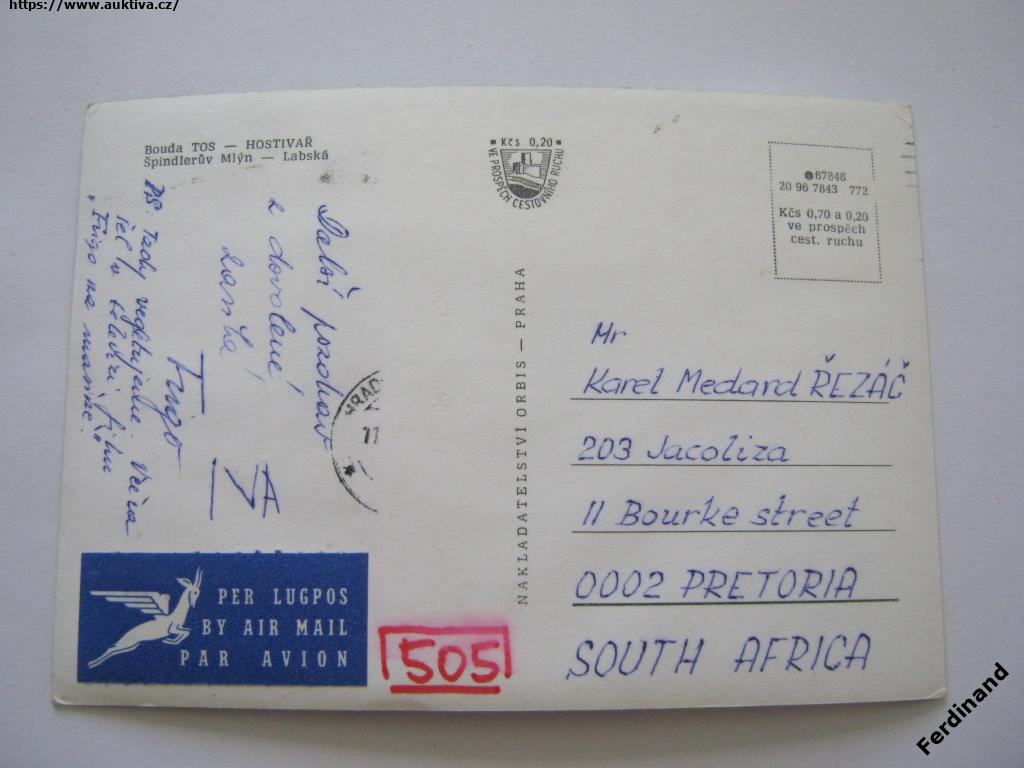 https://www.auktiva.cz/
Bouda TOS — HOSTIVAŘ
Špindlerův Mlýn — Labská
Další pozdrav
z dovolené
zasílá
Frigo
PS: Tady vegetujeme. Včera
šel v televizi film
„Frigo na mašině.“
HRAD
11
PER LUGPOS
BY AIR MAIL
PAR AVION
505
Kčs 0,20
VE PROSPĚCH CESTOVNÍHO RUCHU
NAKLADATELSTVÍ ORBIS — PRAHA
67846
20 96 7843 772
Kčs 0,70 a 0,20
ve prospěch
cest. ruchu
Mr
Karel Medard ŘEZÁČ
203 Jacoliza
11 Bourke street
0002 PRETORIA
SOUTH AFRICA
Ferdinand